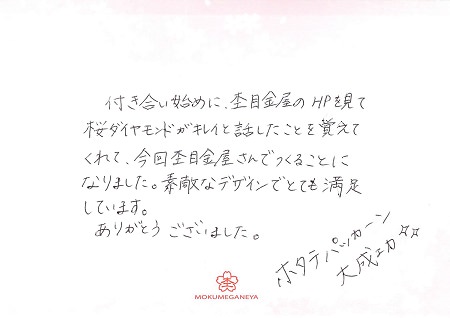 付き合い始めに、杢目金屋のHPを見て
桜ダイヤモンドがキレイと話したことを覚えて
くれて、今回杢目金屋さんでつくることに
なりました。素敵なデザインでとても満足
しています。
ありがとうございました。
ホタテパッカーン
大成功☆☆
MOKUMEGANEYA